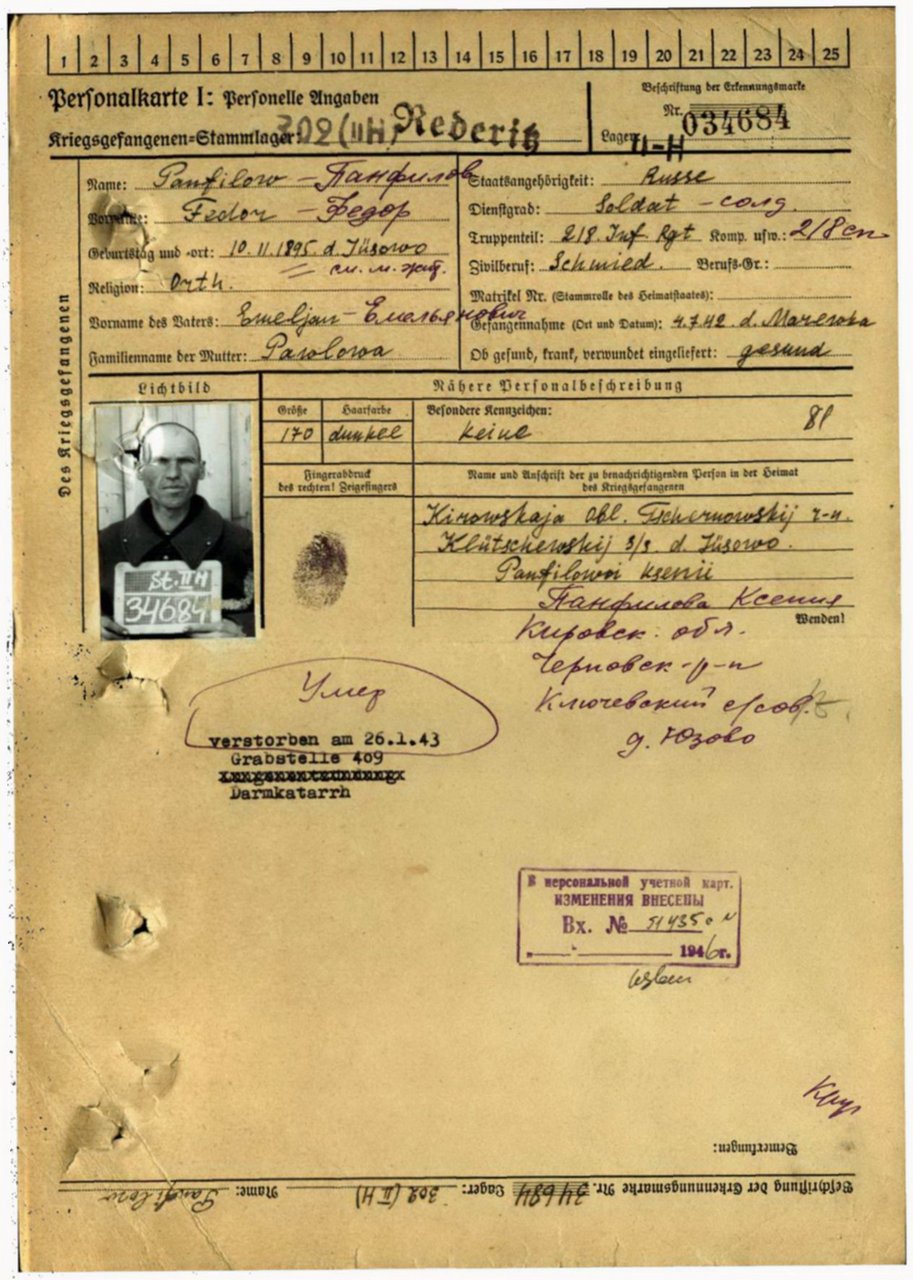 1 2 3 4 5 6 7 8 9 10 11 12 13 14 15 16 17 18 19 20 21 22 23 24 25
Personalkarte I: Personelle Angaben
Kriegsgefangenen-Stammlager: 302 (II H) Rederitz
Beschriftung der Erkennungsmarke
Nr. 034684
Lager: II-H
Des Kriegsgefangenen
Name: Panfilow - Панфилов
Vorname: Fedor - Федор
Geburtstag und -ort: 10.11.1895. d. Jüsowo
см. м. жит.
Religion: Orth.
Vorname des Vaters: Emeljan - Емельянович
Familienname der Mutter: Pawlowa
Staatsangehörigkeit: Russe
Dienstgrad: Soldat - солд.
Truppenteil: 218. Inf Rgt Komp. usw.: 218 сп
Zivilberuf: Schmied. Berufs-Gr.:
Matrikel Nr. (Stammrolle des Heimatstaates):
Gefangennahme (Ort und Datum): 4.7.42 d. Marewka
Ob gesund, krank, verwundet eingeliefert: gesund
Lichtbild
St. II H
34684
Nähere Personalbeschreibung
Größe Haarfarbe Besondere Kennzeichen:
170 dunkel keine
81
Fingerabdruck
des rechten! Zeigefingers
Name und Anschrift der zu benachrichtigenden Person in der Heimat
des Kriegsgefangenen
Kirowskaja Obl. Tschernowskij r-n.
Klütschewskij s/s. d. Jüsowo.
Panfilowoi Ksenii
Панфилова Ксения
Wenden!
Кировск. обл.
Черновск-р-н
Ключевский с/сов.
д. Юзово
Умер
verstorben am 26.1.43
Grabstelle 409
Darmkatarrh
В персональной учетной карт.
ИЗМЕНЕНИЯ ВНЕСЕНЫ
Вх. №
1946г.
Bemerkungen:
Beschriftung der Erkennungsmarke Nr. 34684 Lager: 302 (II H) Name: Panfilow